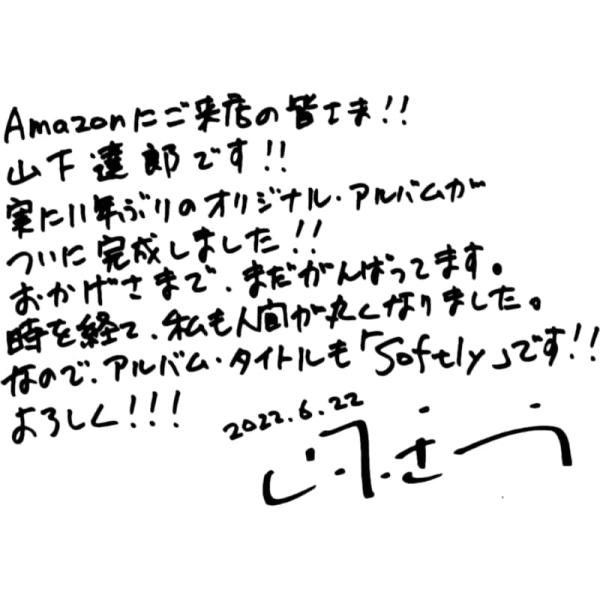 Amazonにご来店の皆さま!!
山下達郎です!!
実に11年ぶりのオリジナル・アルバムが
ついに完成しました!!
おかげさまで、まだがんばってます。
時を経て、私も人間が丸くなりました。
なので、アルバム・タイトルも「Softly」です!!
よろしく!!!
2022.6.22